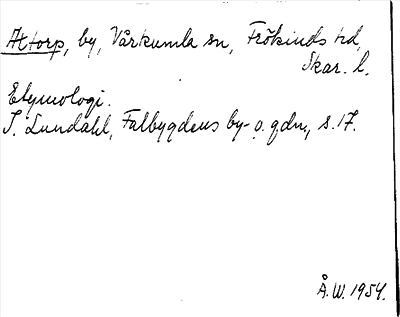 Attorp, by, Vårkumla sn, Frökinds hd,
Skar. l.
Etymologi.
I. Lundahl, Falbygdens by- o. gdn, s. 17.
Å.W. 1954.